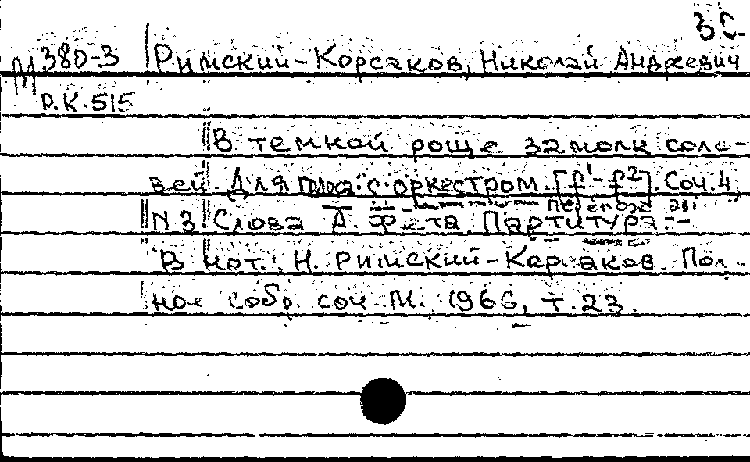 30
М 380-3 Римский-Корсаков, Николай Андреевич
Р.К. 515
В темной роще замолк соло-
вей. Для голоса с оркестром [f¹-f²]. Соч. 4,
N 3. Слова А. Фета. Партитура. -
В нот.: Н. Римский-Корсаков. Пол-
ное собр. соч. М., 1966, т. 23.